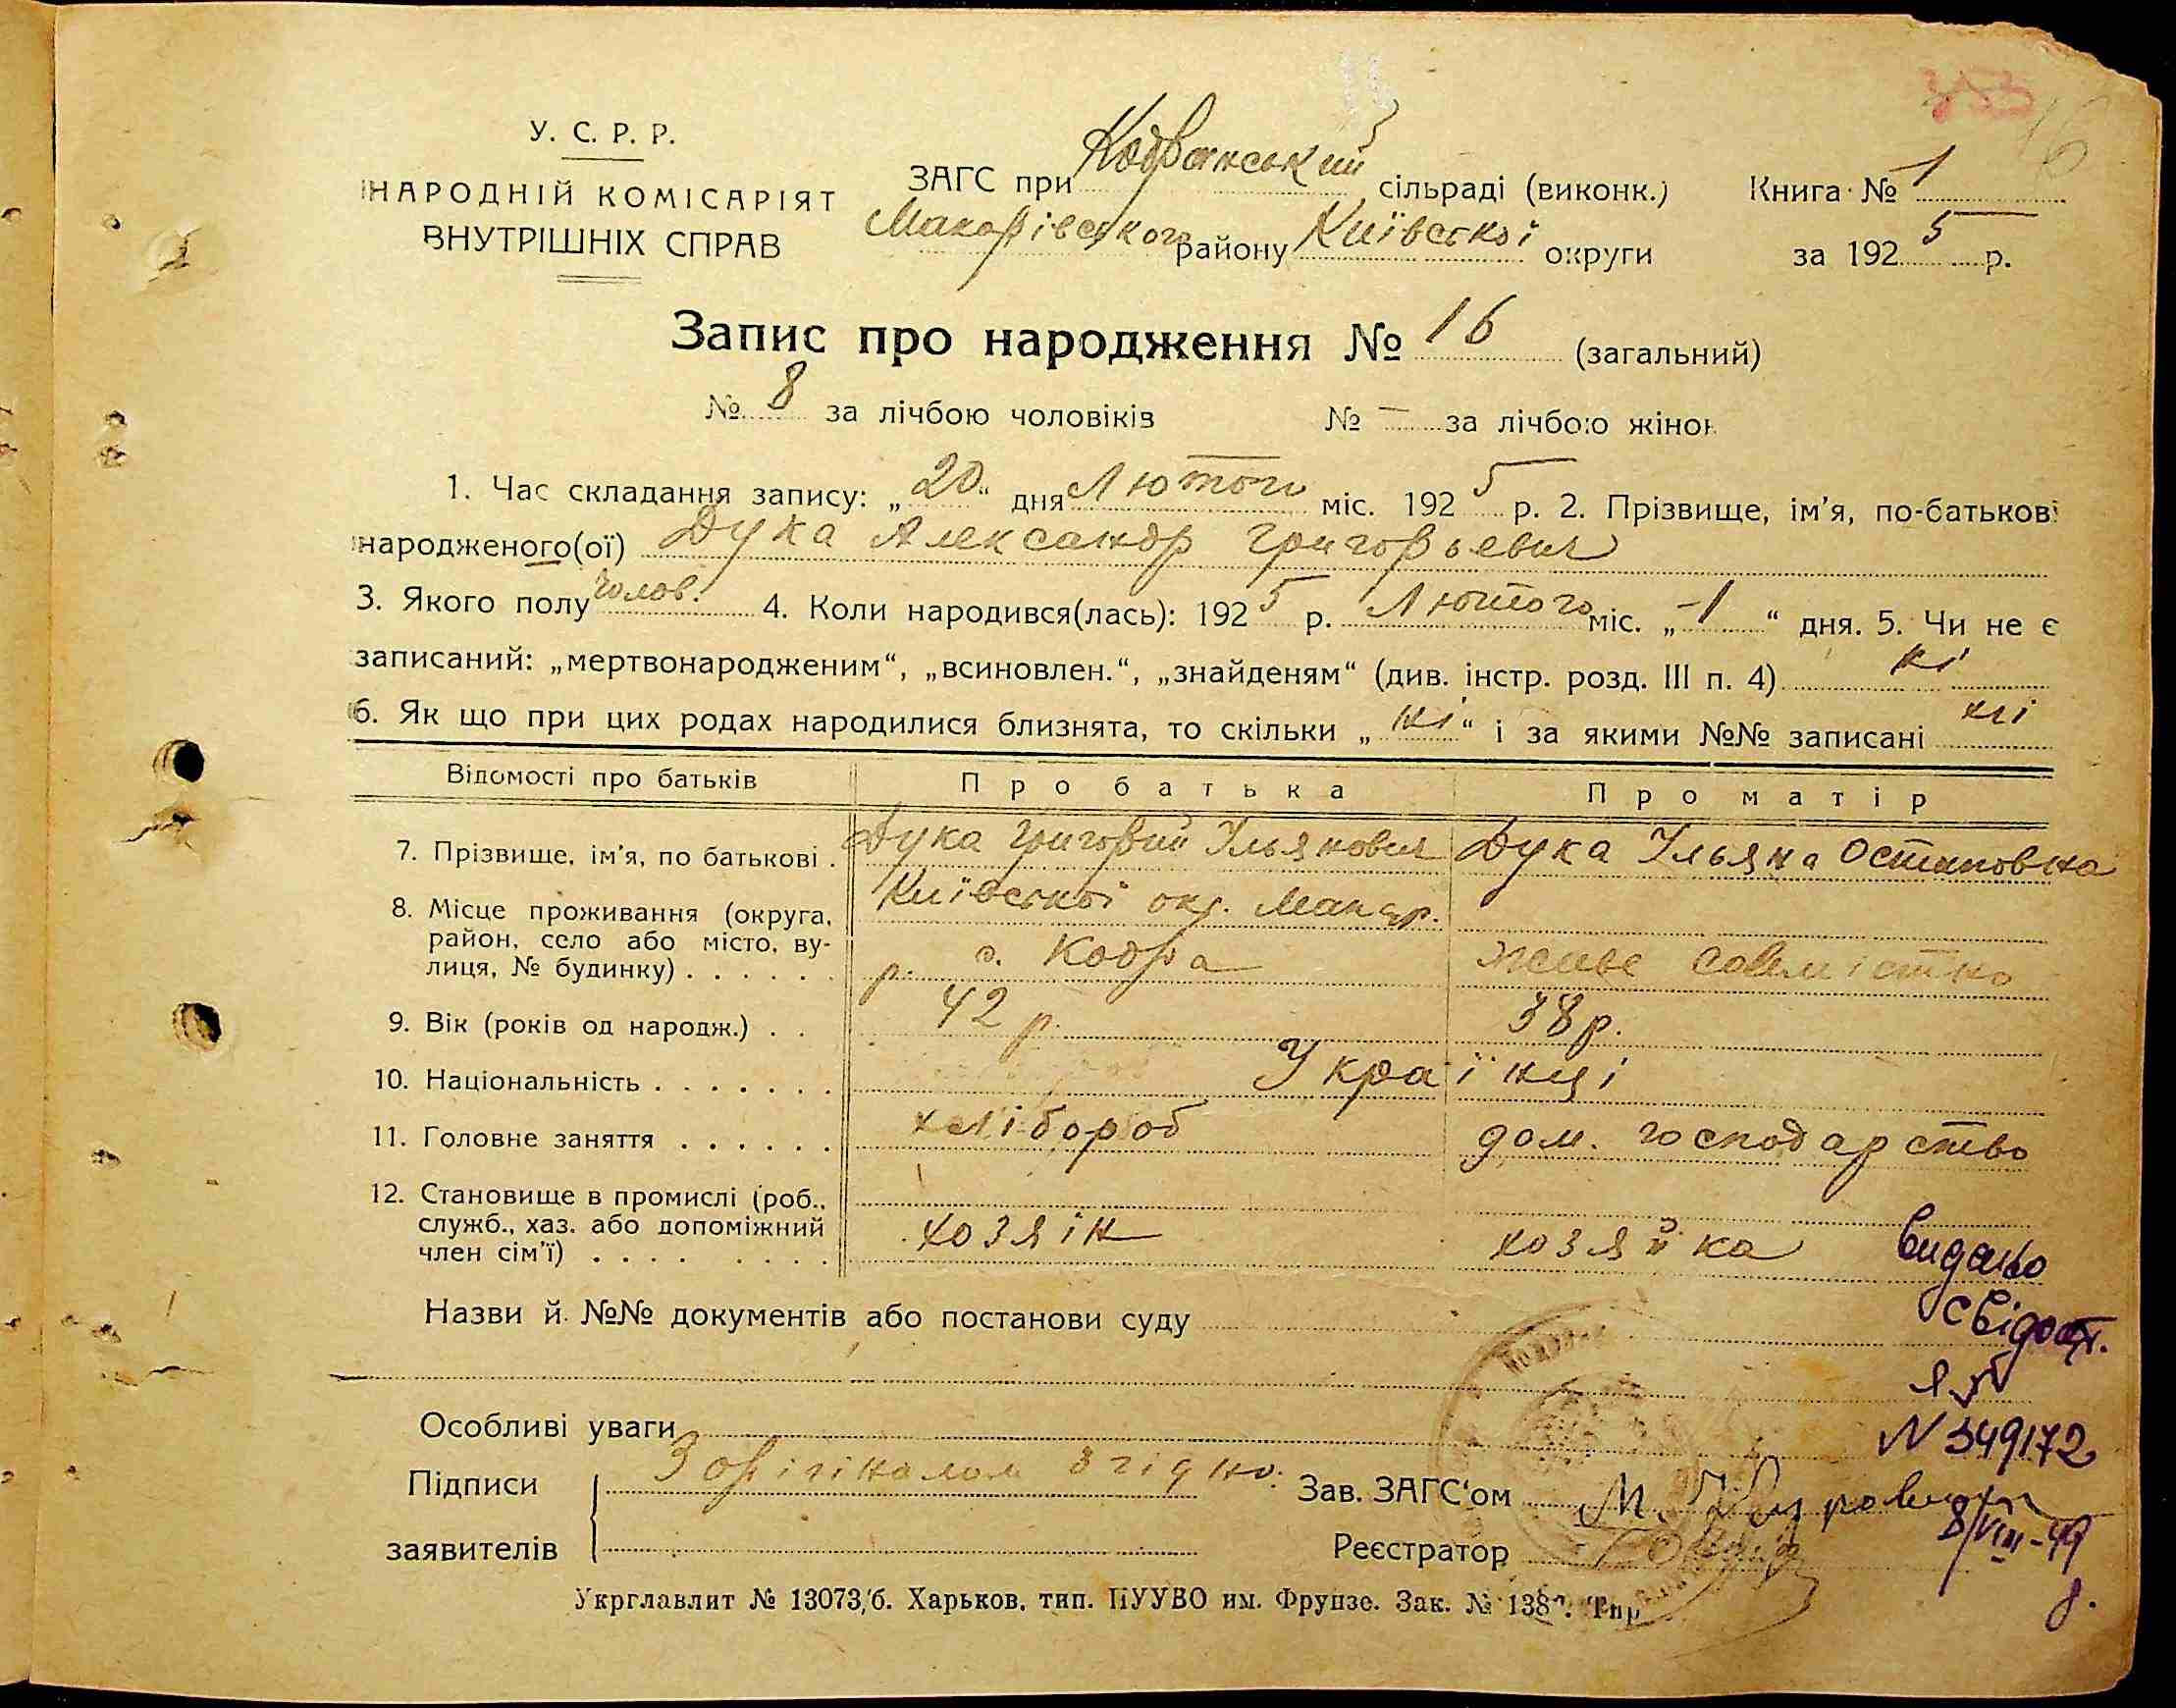 353
16
У. С. Р. Р.
НАРОДНІЙ КОМІСАРІЯТ
ВНУТРІШНІХ СПРАВ
ЗАГС при Кодранський сільраді (виконк.)
Макарівського району Київської округи
Книга № 1
за 1925 р.
Запис про народження № 16 (загальний)
№ 8 за лічбою чоловіків № — за лічбою жінок
1. Час складання запису: „20“ дня Лютого міс. 1925 р. 2. Прізвище, ім'я, по-батькові
народженого(ої) Дука Александр Григорьевич
3. Якого полу чолов. 4. Коли народився(лась): 1925 р. Лютого міс. „-1“ дня. 5. Чи не є
записаний: „мертвонародженим“, „всиновлен.“, „знайденям“ (див. інстр. розд. III п. 4) ні
6. Як що при цих родах народилися близнята, то скільки „ні“ і за якими №№ записані ні
Відомості про батьків Про батька Про матір
7. Прізвище, ім'я, по батькові . Дука Григорий Ільянович Дука Ульяна Остаповна
8. Місце проживання (округа, Київської окр. Макар.
район, село або місто, ву-
лиця, № будинку) . . . . . . р. с. Кодра живе совмістно
9. Вік (років од народж.) . . 42 р. 38 р.
10. Національність . . . . . . . Українці
11. Головне заняття . . . . . . хлібороб дом. господарство
12. Становище в промислі (роб.,
служб., хаз. або допоміжний
член сім'ї) . . . . . . . . хозяін хозяйка
Видано
свідоцт.
Назви й №№ документів або постанови суду
Особливі уваги
N 349172
Підписи З орігіналом згідно. Зав. ЗАГС'ом М.
8/VIII-49
заявителів Реєстратор
Укрглавлит № 13073/б. Харьков, тип. ПУУВО им. Фрунзе. Зак. №